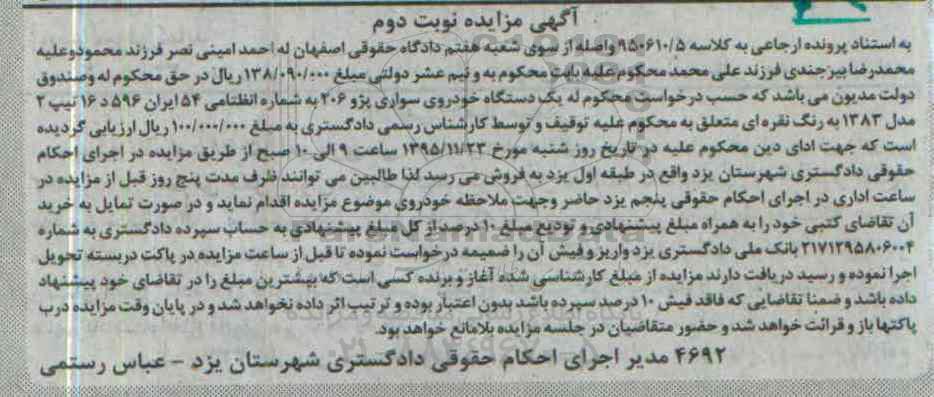 آگهی مزایده نوبت دوم
به استناد پرونده ارجاعی به کلاسه ۹۵۰۶۱۰/۵ واصله از سوی شعبه هفتم دادگاه حقوقی اصفهان له احمد امینی نصر فرزند محمود و علیه
محمدرضا بیرجندی فرزند علی محمد محکوم علیه بابت محکوم به و نیم عشر دولتی مبلغ ۱۳۸/۰۹۰/۰۰۰ ریال در حق محکوم له و صندوق
دولت مدیون می باشد که حسب درخواست محکوم له یک دستگاه خودروی سواری پژو ۲۰۶ به شماره انتظامی ۵۴ ایران ۵۹۶ د ۱۶ تیپ ۲
مدل ۱۳۸۳ به رنگ نقره ای متعلق به محکوم علیه توقیف و توسط کارشناس رسمی دادگستری به مبلغ ۱۰۰/۰۰۰/۰۰۰ ریال ارزیابی گردیده
است که جهت ادای دین محکوم علیه در تاریخ روز شنبه مورخ ۱۳۹۵/۱۱/۲۳ ساعت ۹ الی ۱۰ صبح از طریق مزایده در اجرای احکام
حقوقی دادگستری شهرستان یزد واقع در طبقه اول یزد به فروش می رسد لذا طالبین می توانند ظرف مدت پنج روز قبل از مزایده در
ساعت اداری در اجرای احکام حقوقی پنجم یزد حاضر وجهت ملاحظه خودروی موضوع مزایده اقدام نماید و در صورت تمایل به خرید
آن تقاضای کتبی خود را به همراه مبلغ پیشنهادی و تودیع مبلغ ۱۰ درصد از کل مبلغ پیشنهادی به حساب سپرده دادگستری به شماره
۲۱۷۱۲۹۵۸۰۶۰۰۴ بانک ملی دادگستری یزد واریز و فیش آن را ضمیمه درخواست نموده تا قبل از ساعت مزایده در پاکت دربسته تحویل
اجرا نموده و رسید دریافت دارند مزایده از مبلغ کارشناسی شده آغاز و برنده کسی است که بیشترین مبلغ را در تقاضای خود پیشنهاد
داده باشد و ضمنا تقاضایی که فاقد فیش ۱۰ درصد سپرده باشد بدون اعتبار بوده و ترتیب اثر داده نخواهد شد و در پایان وقت مزایده درب
پاکتها باز و قرائت خواهد شد و حضور متقاضیان در جلسه مزایده بلامانع خواهد بود.
۴۶۹۲ مدیر اجرای احکام حقوقی دادگستری شهرستان یزد - عباس رستمی